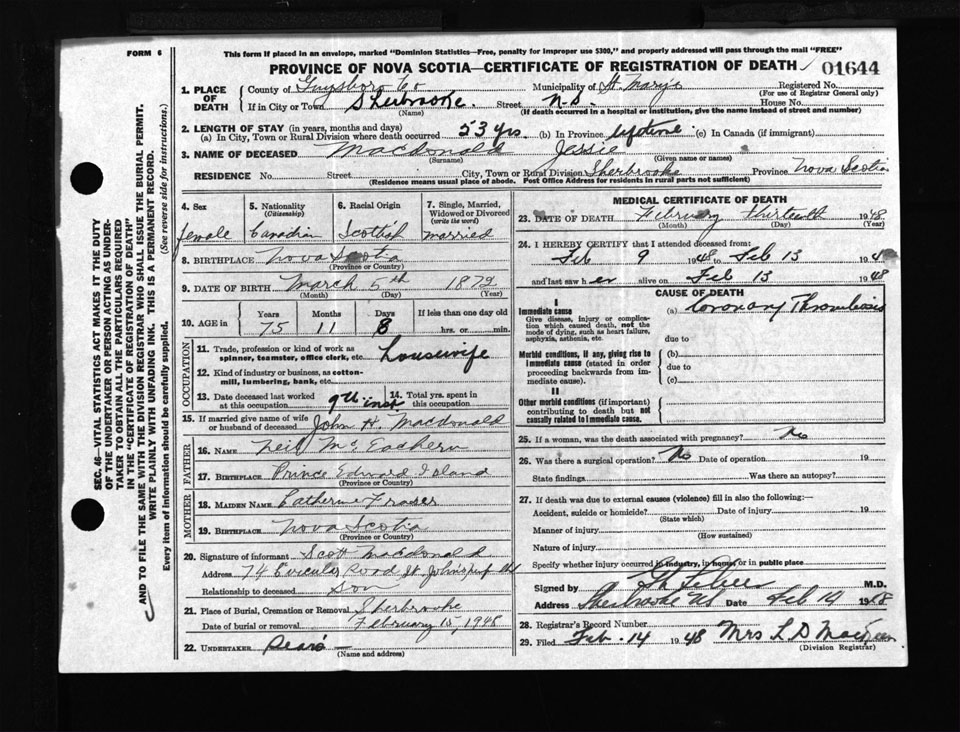 FORM 6
This form if placed in an envelope, marked "Dominion Statistics—Free, penalty for improper use $300," and properly addressed will pass through the mail "FREE"
PROVINCE OF NOVA SCOTIA—CERTIFICATE OF REGISTRATION OF DEATH
01644
1. PLACE OF DEATH
County of Guysboro Co Municipality of St. Mary's Registered No.
(For use of Registrar General only)
If in City or Town Sherbrooke Street N.S. House No.
(Name) (If death occurred in a hospital or institution, give the name instead of street and number)
2. LENGTH OF STAY (in years, months and days)
(a) In City, Town or Rural Division where death occurred 53 yrs. (b) In Province lifetime (c) In Canada (if immigrant)
3. NAME OF DECEASED Macdonald Jessie
(Surname) (Given name or names)
RESIDENCE No. Street City, Town or Rural Division Sherbrooke Province Nova Scotia
(Residence means usual place of abode. Post Office Address for residents in rural parts not sufficient)
4. Sex female
5. Nationality (Citizenship) Canadian
6. Racial Origin Scottish
7. Single, Married, Widowed or Divorced (write the word) married
8. BIRTHPLACE Nova Scotia
(Province or Country)
9. DATE OF BIRTH March 5th 1872
(Month) (Day) (Year)
10. AGE in Years Months Days If less than one day old
75 11 8 hrs. or min.
OCCUPATION
11. Trade, profession or kind of work as spinner, teamster, office clerk, etc. housewife
12. Kind of industry or business, as cotton-mill, lumbering, bank, etc.
13. Date deceased last worked at this occupation 9th inst
14. Total yrs. spent in this occupation
15. If married give name of wife or husband of deceased John H. Macdonald
FATHER
16. NAME Neil McEachern
17. BIRTHPLACE Prince Edward Island
(Province or Country)
MOTHER
18. MAIDEN NAME Catherine Fraser
19. BIRTHPLACE Nova Scotia
(Province or Country)
20. Signature of informant Scott Macdonald
Address 74 Circular Road St. John's Nfld
Relationship to deceased Son
21. Place of Burial, Cremation or Removal Sherbrooke
Date of burial or removal February 15, 1948
22. UNDERTAKER
(Name and address)
MEDICAL CERTIFICATE OF DEATH
23. DATE OF DEATH February Thirteenth 1948
(Month) (Day) (Year)
24. I HEREBY CERTIFY that I attended deceased from:
Feb 9 1948 to Feb 13 194
and last saw her alive on Feb 13 1948
CAUSE OF DEATH
I
Immediate cause
Give disease, injury or complication which caused death, not the mode of dying, such as heart failure, asphyxia, asthenia, etc.
(a) Coronary Thrombosis
due to
Morbid conditions, if any, giving rise to immediate cause (stated in order proceeding backwards from immediate cause).
(b)
due to
(c)
II
Other morbid conditions (if important) contributing to death but not causally related to immediate cause.
25. If a woman, was the death associated with pregnancy? No
26. Was there a surgical operation? No Date of operation 19
State findings Was there an autopsy?
27. If death was due to external causes (violence) fill in also the following:—
Accident, suicide or homicide? Date of injury 19
(State which)
Manner of injury
(How sustained)
Nature of injury
Specify whether injury occurred in industry, in home, or in public place
Signed by M.D.
Address Sherbrooke NS Date Feb 14 1948
28. Registrar's Record Number
29. Filed Feb-14 1948 Mrs L D
(Division Registrar)
SEC. 46—VITAL STATISTICS ACT MAKES IT THE DUTY
OF THE UNDERTAKER OR PERSON ACTING AS UNDER-
TAKER TO OBTAIN ALL THE PARTICULARS REQUIRED
IN THE "CERTIFICATE OF REGISTRATION OF DEATH"
AND TO FILE THE SAME WITH THE DIVISION REGISTRAR WHO SHALL ISSUE THE BURIAL PERMIT.
WRITE PLAINLY WITH UNFADING INK. THIS IS A PERMANENT RECORD.
Every item of information should be carefully supplied. (See reverse side for instructions.)